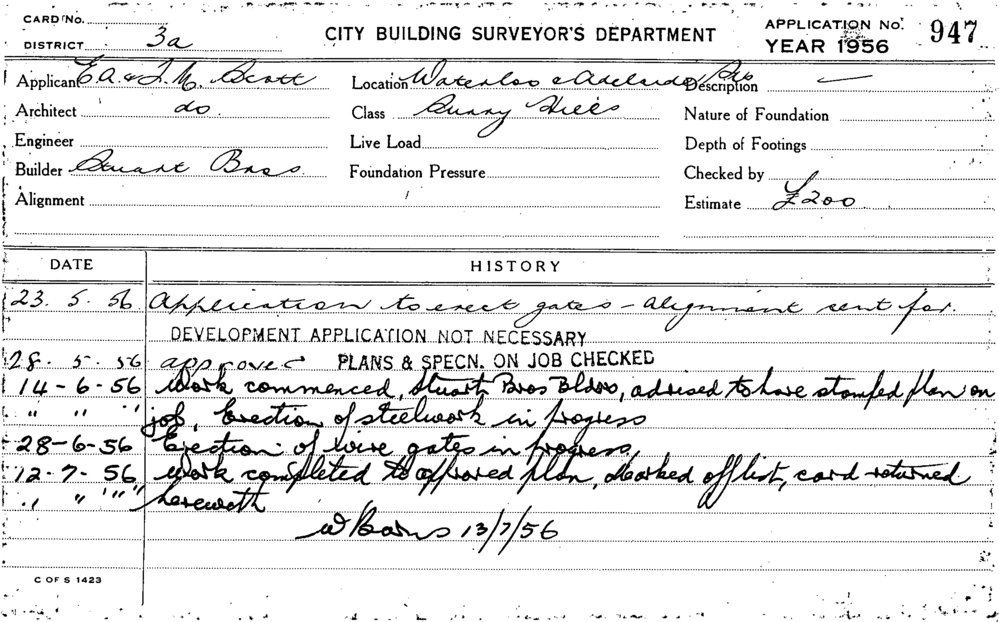 CARD No.
DISTRICT 3a
CITY BUILDING SURVEYOR'S DEPARTMENT
APPLICATION No. 947
YEAR 1956
Applicant E.A. & T.M. Scott
Location Waterloo & Adelaide
Description —
Architect do
Class Surry Hills
Nature of Foundation
Engineer
Live Load
Depth of Footings
Builder Stuart Bros
Foundation Pressure
Checked by
Alignment
Estimate £200
DATE HISTORY
23. 5. 56 Application to erect gates – alignment sent for.
DEVELOPMENT APPLICATION NOT NECESSARY
28. 5. 56 approved PLANS & SPECN. ON JOB CHECKED
14-6-56 Work commenced, Stuart Bros Bldrs, advised to have stamped plan on
" " " job, Erection of steelwork in progress
28-6-56 Erection of wire gates in progress,
12-7-56 Work completed to approved plan, Marked off list, card returned
" " " herewith
13/7/56
C OF S 1423